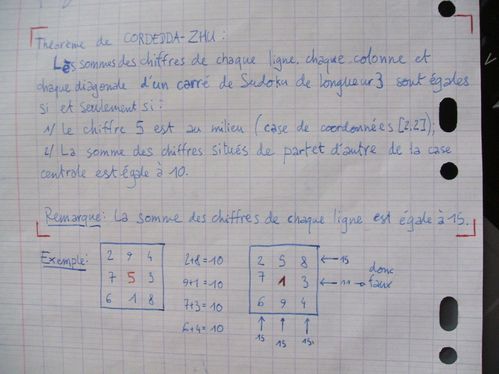 Théorème de CORDEDDA-ZHU :
Les sommes des chiffres de chaque ligne, chaque colonne et
chaque diagonale d'un carré de Sudoku de longueur 3 sont égales
si et seulement si :
1/ Le chiffre 5 est au milieu (case de coordonnées [2,2]);
2/ La somme des chiffres situés de part et d'autre de la case
centrale est égale à 10.
Remarque : La somme des chiffres de chaque ligne est égale à 15.
Exemple :
2 9 4
7 5 3
6 1 8
2+8=10
9+1=10
7+3=10
6+4=10
2 5 8 ← 15
7 1 3 ← 11 → donc faux
6 9 4
↑ ↑ ↑
15 15 15